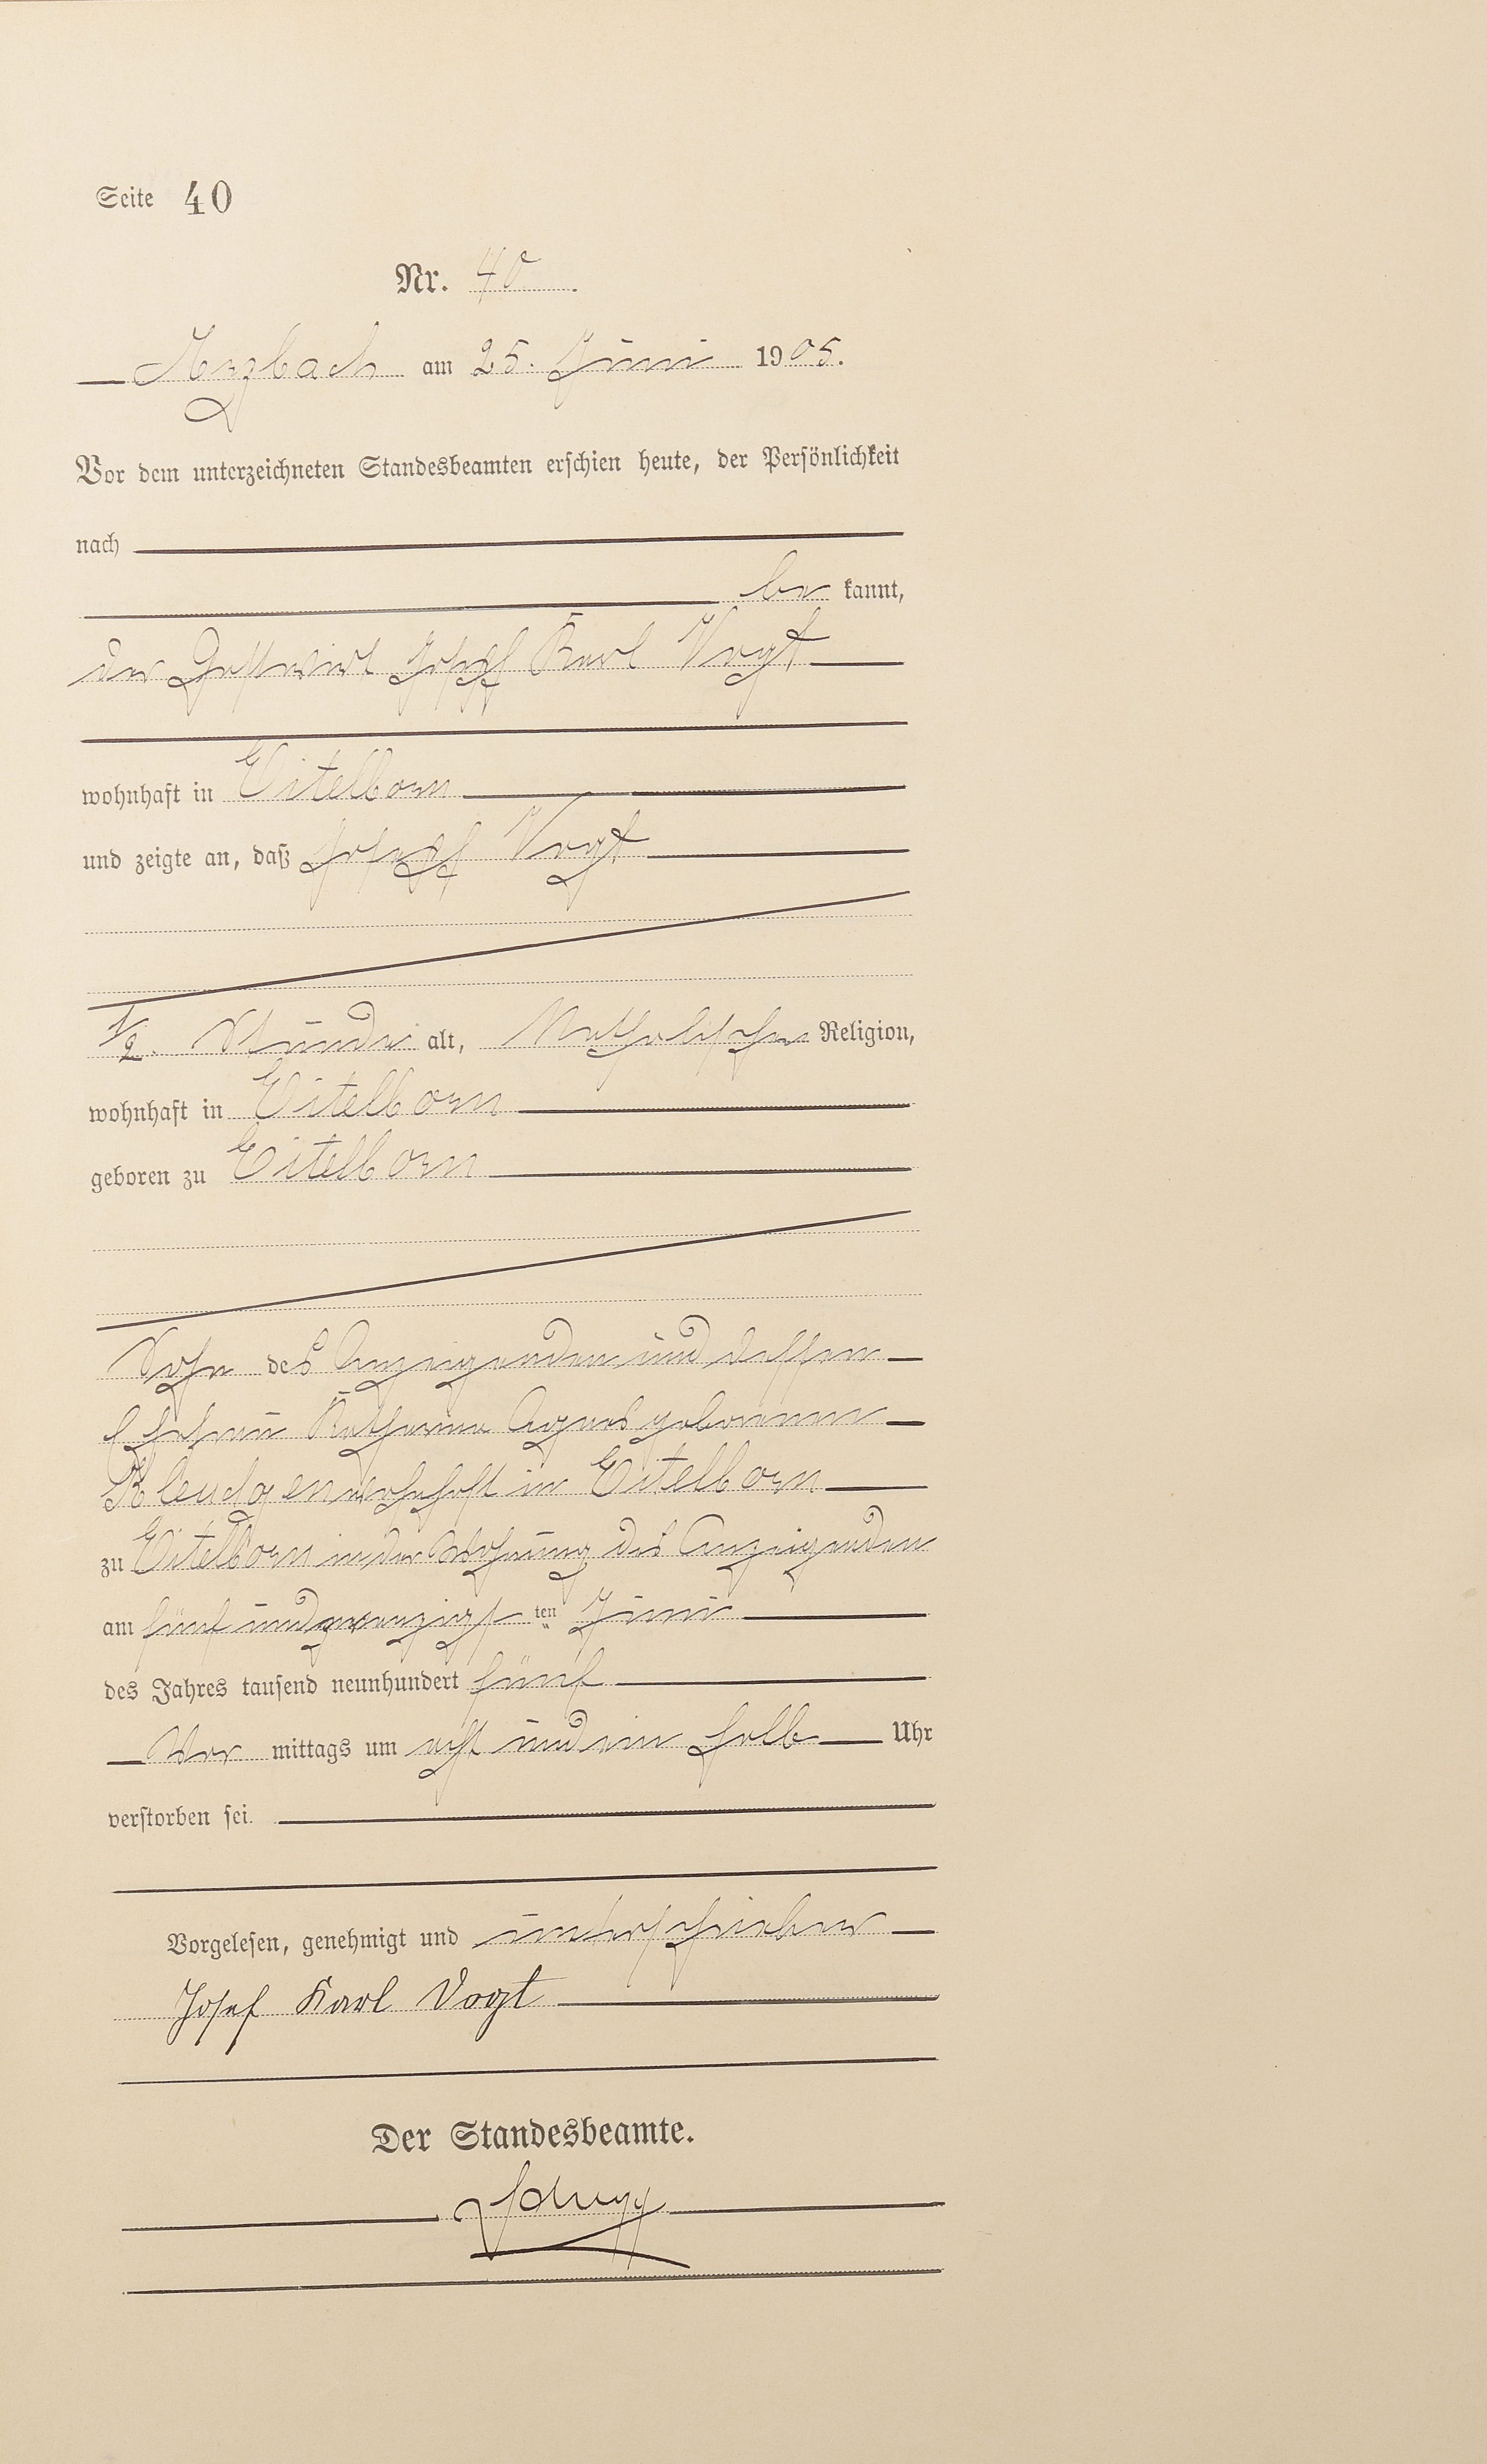 Seite 40
Nr. 40
Arzbach am 25. Juni 1905.
Vor dem unterzeichneten Standesbeamten erschien heute, der Persönlichkeit
nach
be kannt,
der Gastwirt Josef Karl Vogt
wohnhaft in Eitelborn
und zeigte an, daß Josef Vogt
1/2 Stunde alt, katholischer Religion,
wohnhaft in Eitelborn
geboren zu Eitelborn
Sohn des Anzeigenden und dessen
Ehefrau Katharina Agnes geborenen
Kleudgen wohnhaft in Eitelborn
zu Eitelborn in der Wohnung des Anzeigenden
am fünf und zwanzigs ten Juni
des Jahres tausend neunhundert fünf
Vor mittags um acht und ein halb Uhr
verstorben sei.
Vorgelesen, genehmigt und unterschrieben
Josef Karl Vogt
Der Standesbeamte.